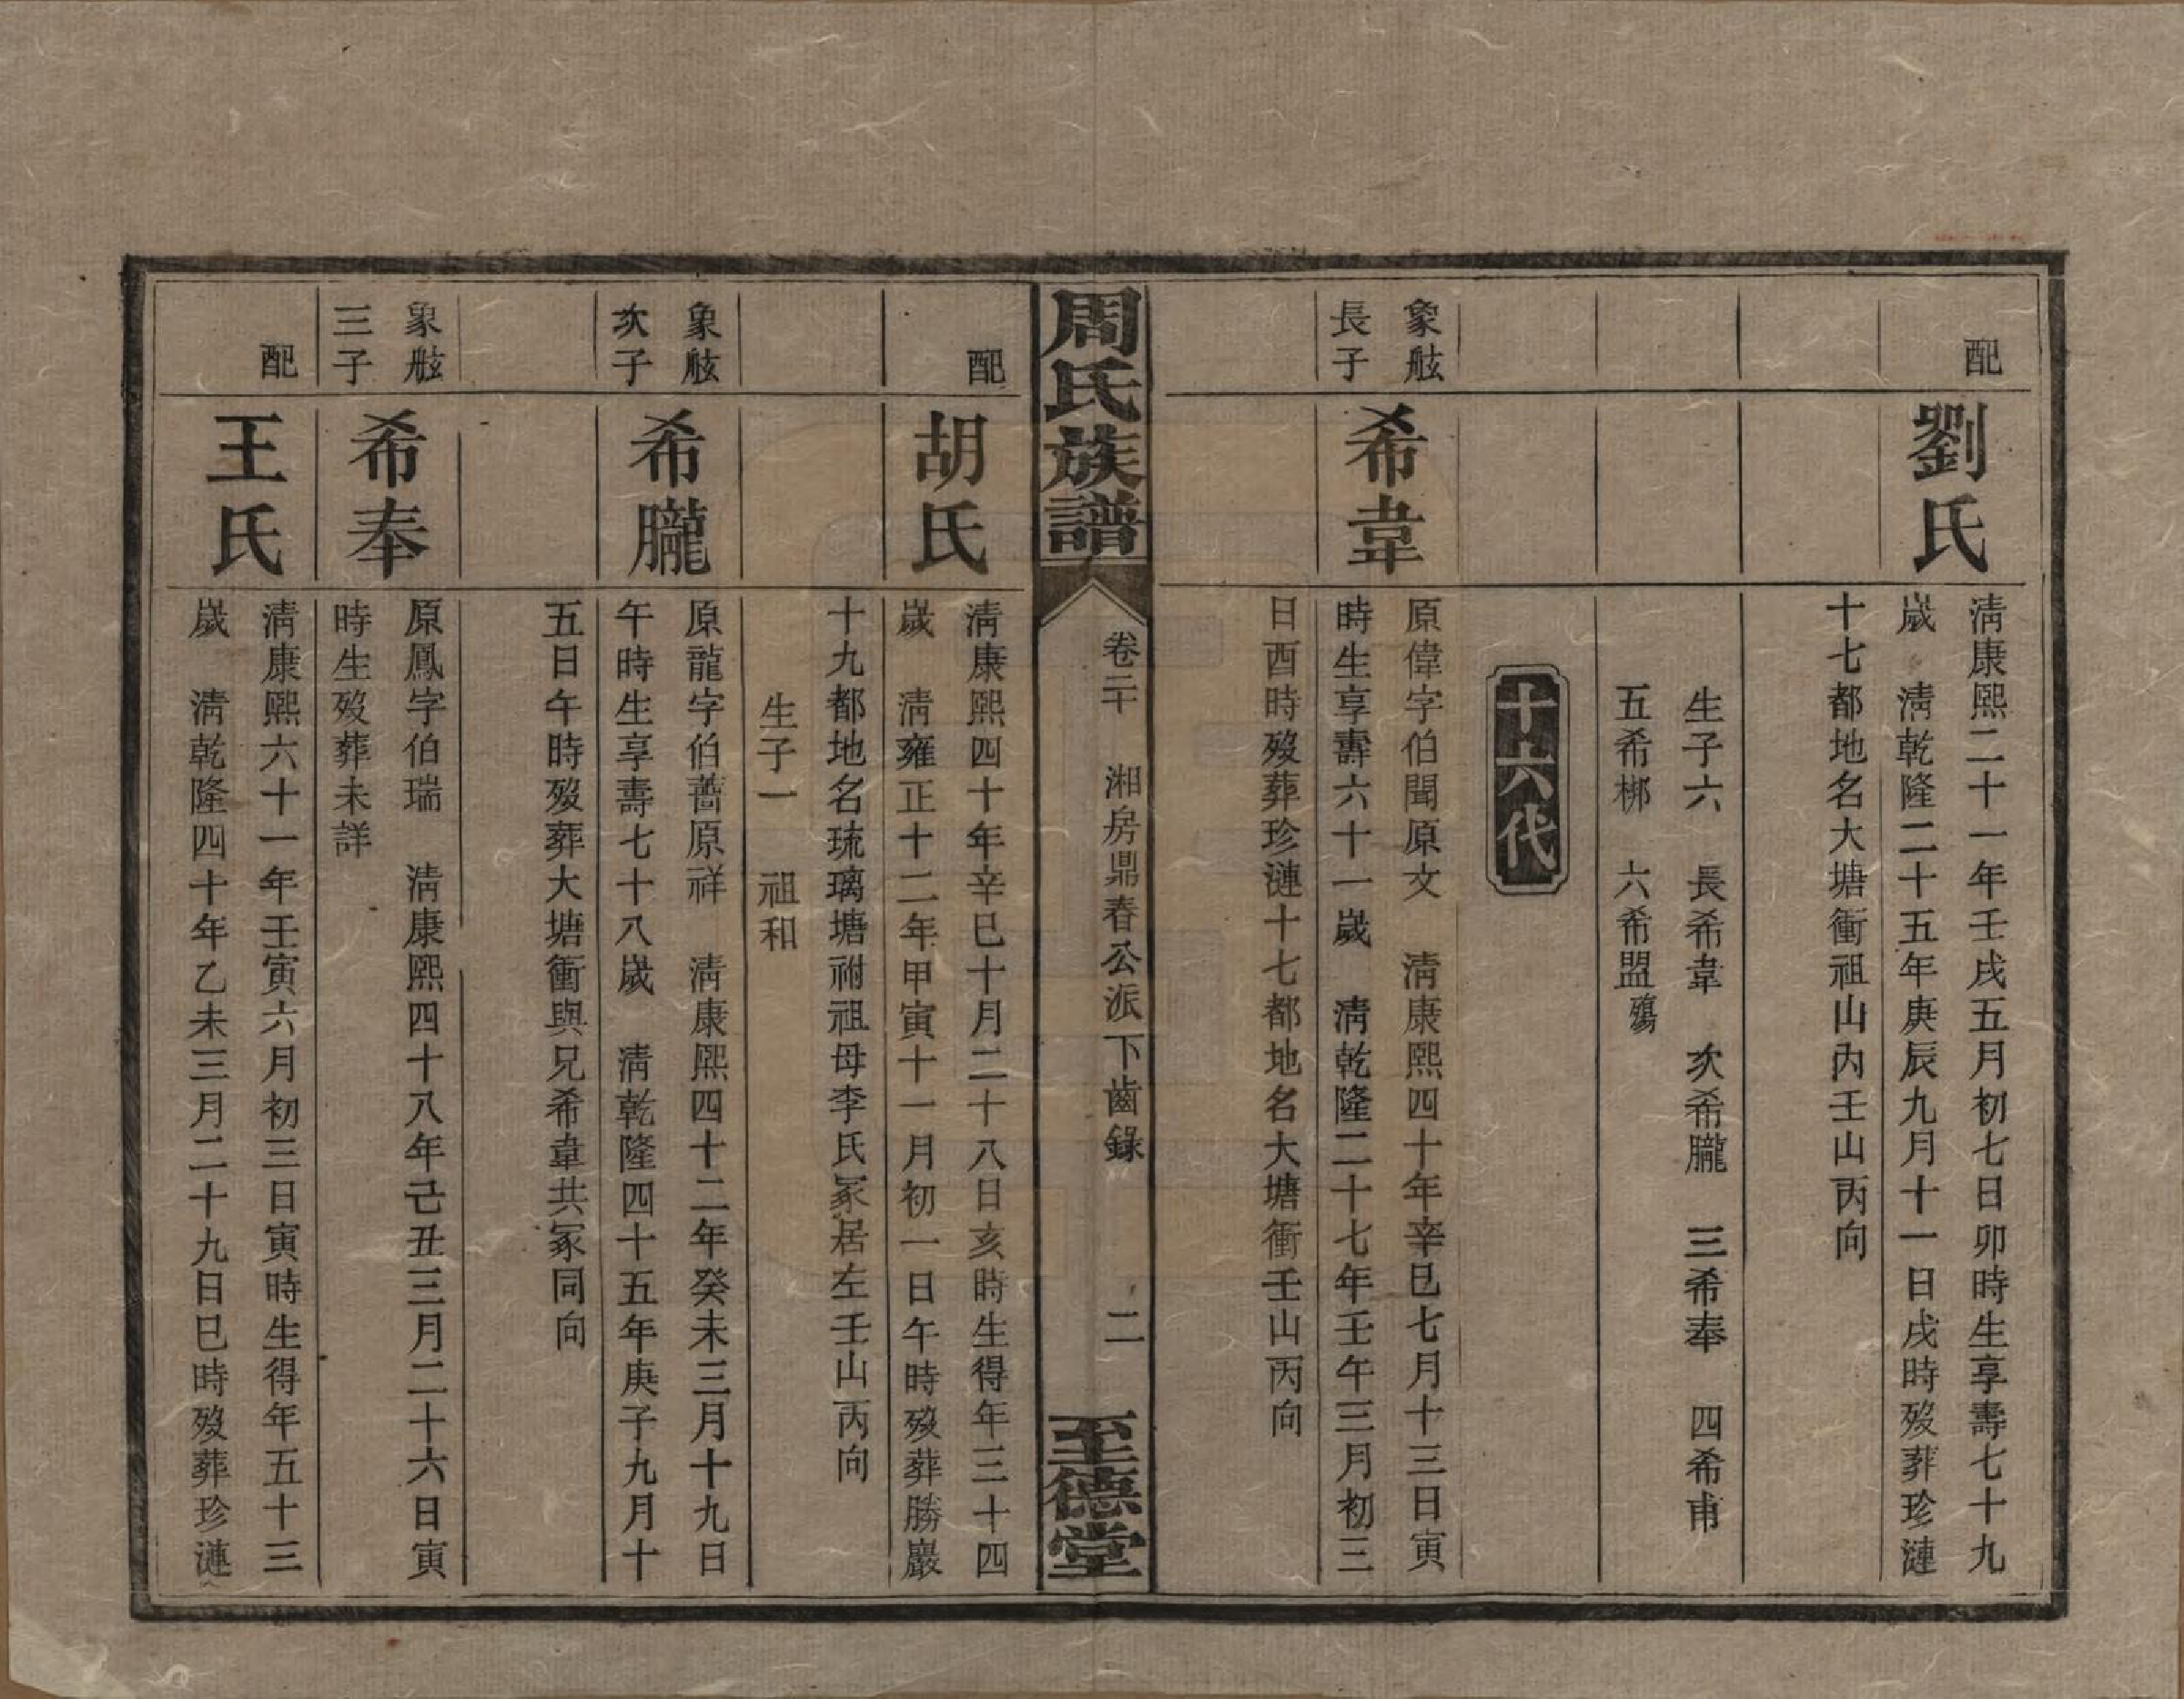 配
劉氏
淸康熙二十一年壬戌五月初七日卯時生享壽七十九
歲　淸乾隆二十五年庚辰九月十一日戌時歿葬珍漣
十七都地名大塘衝祖山內壬山丙向
生子六　長希韋　次希朧　三希奉　四希甫
五希梆　六希盟殤
十六代
象舷
長子
希韋
原偉字伯聞原文　淸康熙四十年辛巳七月十三日寅
時生享壽六十一歲　淸乾隆二十七年壬午三月初三
日酉時歿葬珍漣十七都地名大塘衝壬山丙向
周氏族譜
卷二十　湘房鼎春公派下齒錄
二
至德堂
配
胡氏
淸康熙四十年辛巳十月二十八日亥時生得年三十四
歲　淸雍正十二年甲寅十一月初一日午時歿葬勝巖
十九都地名琉璃塘祔祖母李氏冢居左壬山丙向
生子一　祖和
象舷
次子
希朧
原龍字伯薔原祥　淸康熙四十二年癸未三月十九日
午時生享壽七十八歲　淸乾隆四十五年庚子九月十
五日午時歿葬大塘衝與兄希韋共冢同向
象舷
三子
希奉
原鳳字伯瑞　淸康熙四十八年己丑三月二十六日寅
時生歿葬未詳
配
王氏
淸康熙六十一年壬寅六月初三日寅時生得年五十三
歲　淸乾隆四十年乙未三月二十九日巳時歿葬珍漣